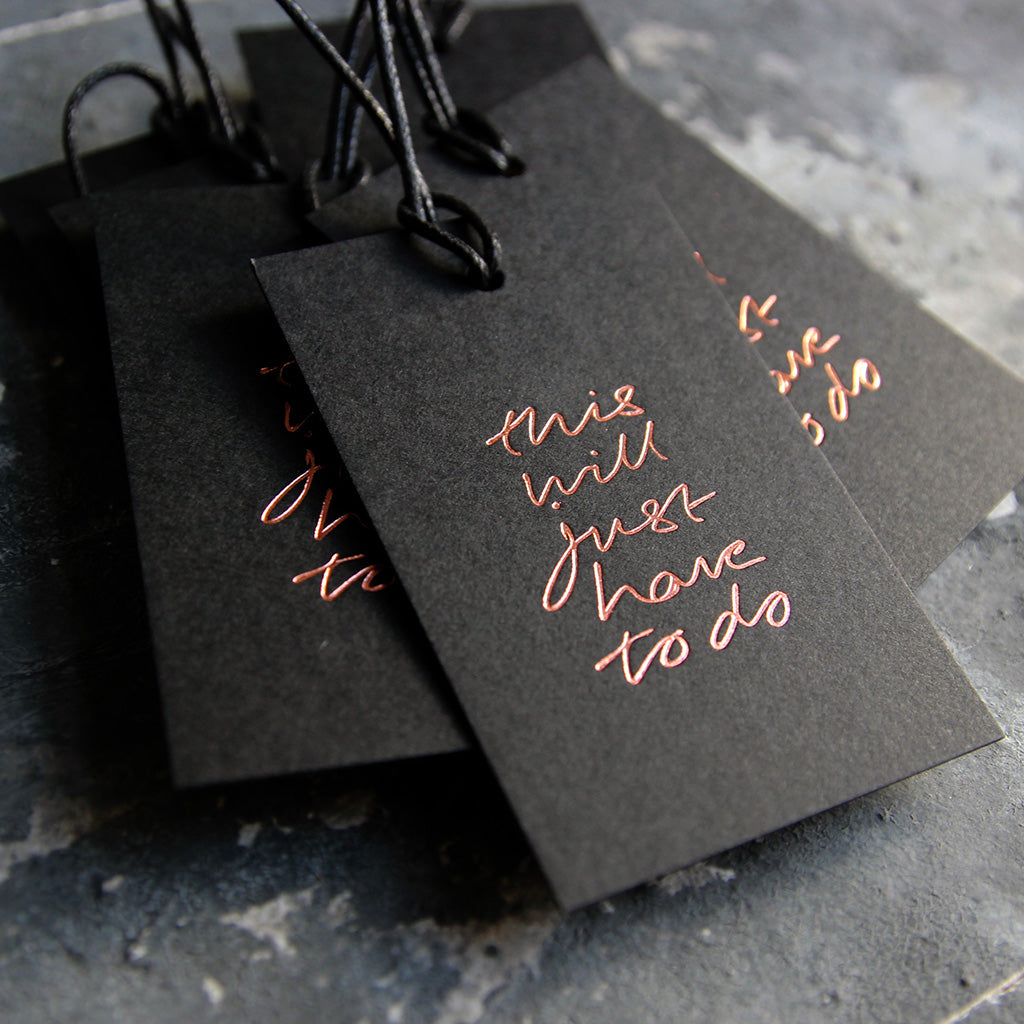 this
will
just
have
to do
st
ave
o do
j
h
to